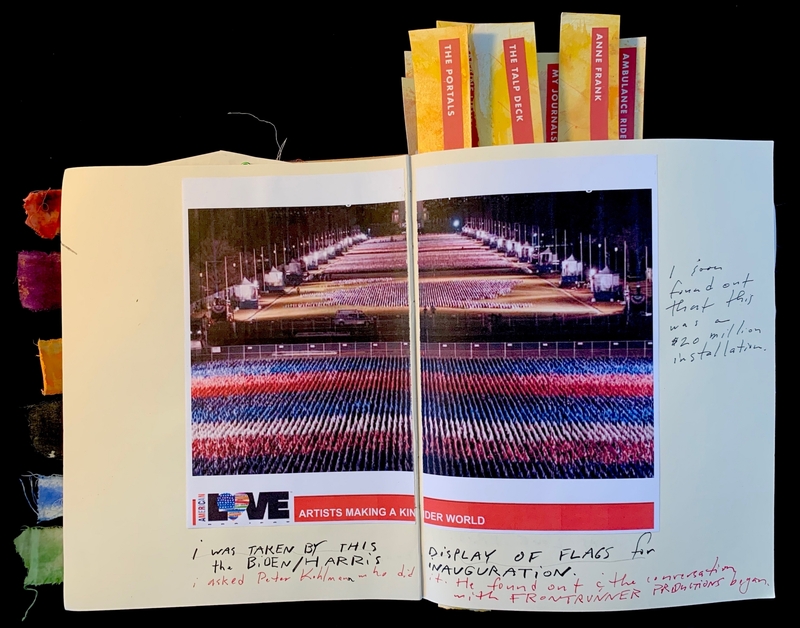 THE PORTALS
THE TALP DECK
MY JOURNALS
ANNE FRANK
AMBULANCE RIDE
I soon
found out
that this
was a
$20 million
installation.
AMERICAN
LOVE
ARTISTS MAKING A KINDER WORLD
i WAS TAKEN BY THIS DISPLAY OF FLAGS for
the BiDEN/HARRIS INAUGURATION.
i asked Peter who did it. He found out & the conversation
with FRONTRUNNER PRODUCTIONS began.